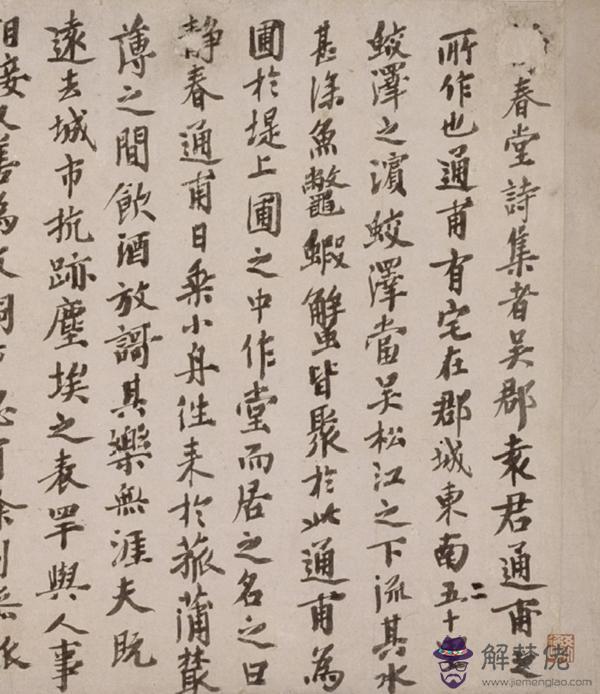 春堂詩集者吳郡袁君通甫之
所作也通甫有宅在郡城東南五十
蛟澤之濱蛟澤當吳松江之下流其水
甚深魚鼈蝦蟹皆聚於此通甫為
圃於堤上圃之中作堂而居之名之曰
靜春通甫日乗小舟往来於菰蒲叢
薄之間飲酒放謌其樂無涯夫既
遠去城市抗跡塵埃之表罕與人事
相接又善為文
解梦佬
www.jiemenglao.com